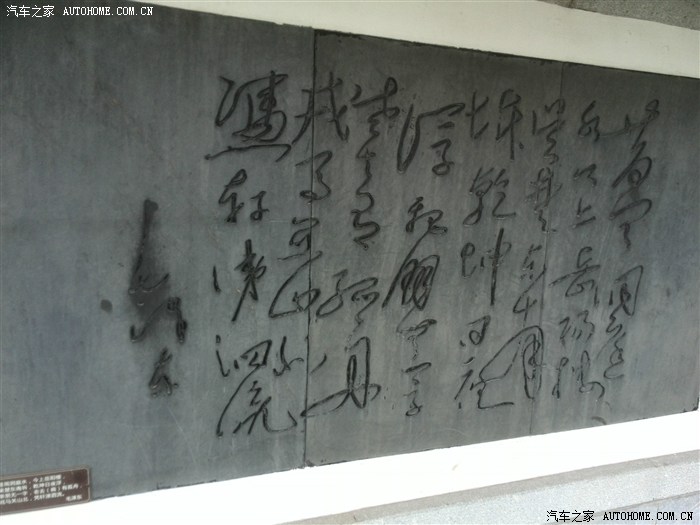 汽车之家 AUTOHOME.COM.CN
昔闻洞庭
水今上岳阳楼
吴楚东南
坼乾坤日夜
浮親朋無一字
老去有孤舟
戎馬関山北
憑軒涕泗流
毛泽东
汽车之家 AUTOHOME.COM.CN